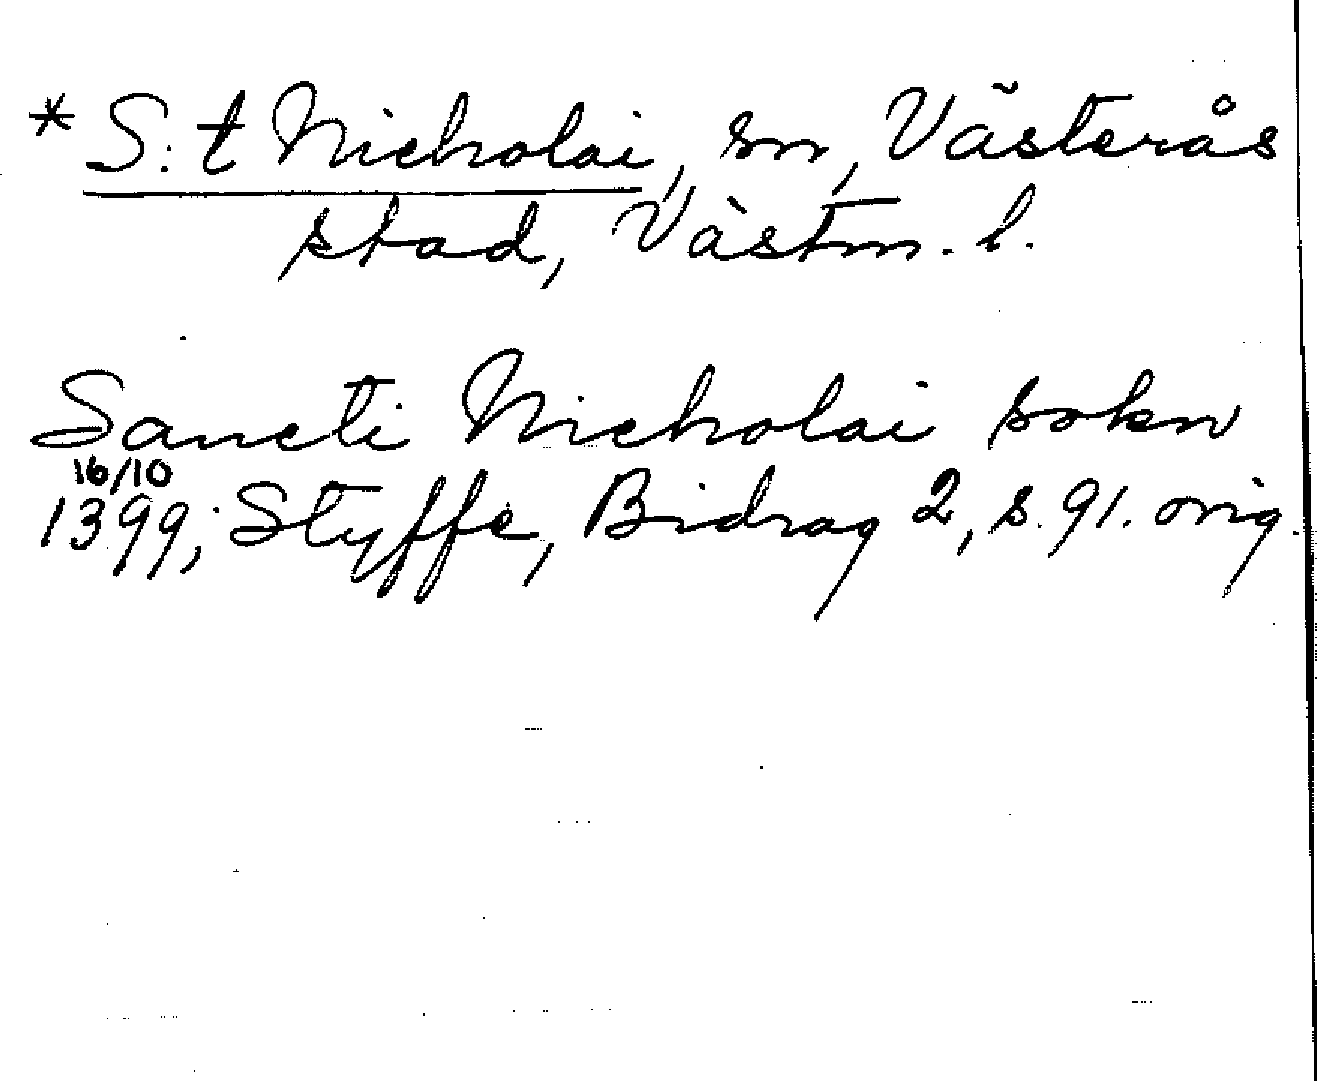 * S:t Nicholai, sn, Västerås
stad, Västm. l.
Sancti Nicholai sokn
16/10
1399; Styffe, Bidrag 2, s. 91. orig.